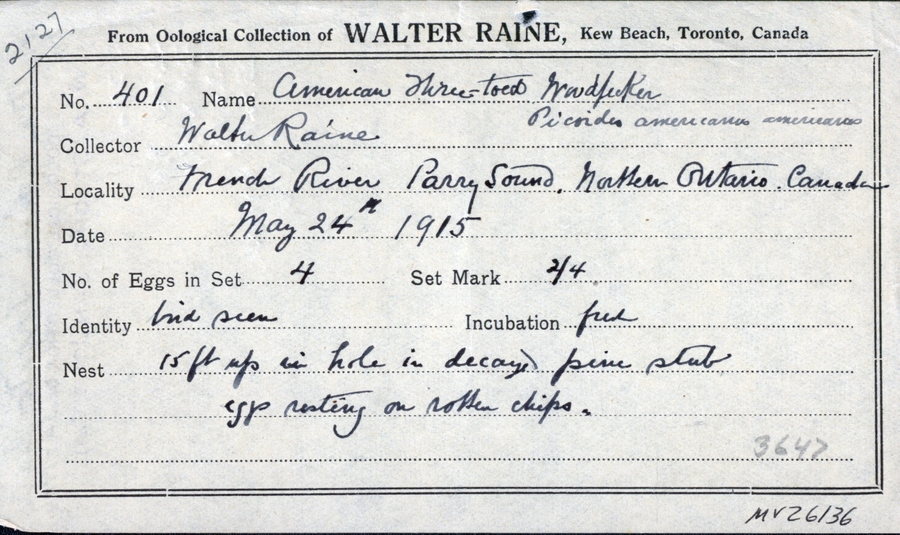 2127
From Oological Collection of WALTER RAINE, Kew Beach, Toronto, Canada
No. 401 Name American Three-toed Woodpecker
Picoides americanus americanus
Collector Walter Raine
Locality French River Parry Sound. Northern Ontario. Canada
Date May 24th 1915
No. of Eggs in Set 4 Set Mark 2/4
Identity bird seen Incubation fresh
Nest 15 ft up in hole in decayed pine stub
eggs resting on rotten chips.
3647
MVZ6136